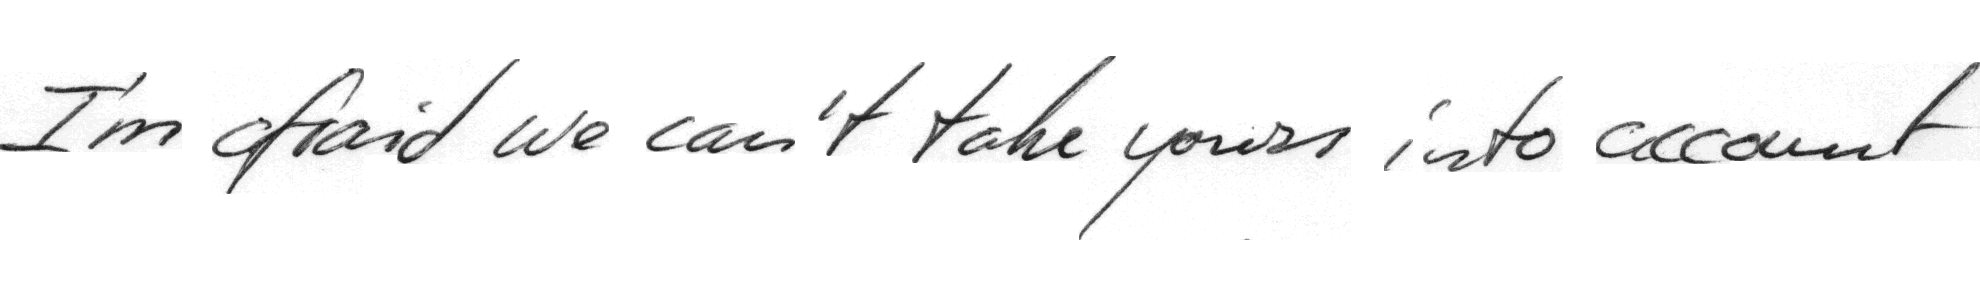 I'm afraid we can't take yours into account